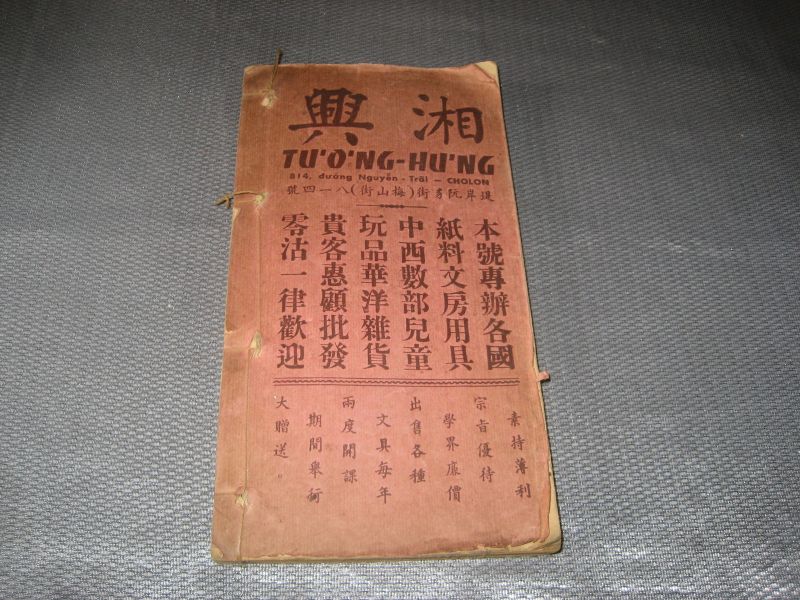 興湘
TƯƠNG-HƯNG
814, đường Nguyễn - Trãi – CHOLON
號四一八(街山梅)街豸阮岸堤
本號專辦各國
紙料文房用具
中西數部兒童
玩品華洋雜貨
貴客惠顧批發
零沽一律歡迎
素持薄利
宗旨優待
學界廉價
出售各種
文具每年
兩度開課
期間舉行
大贈送。